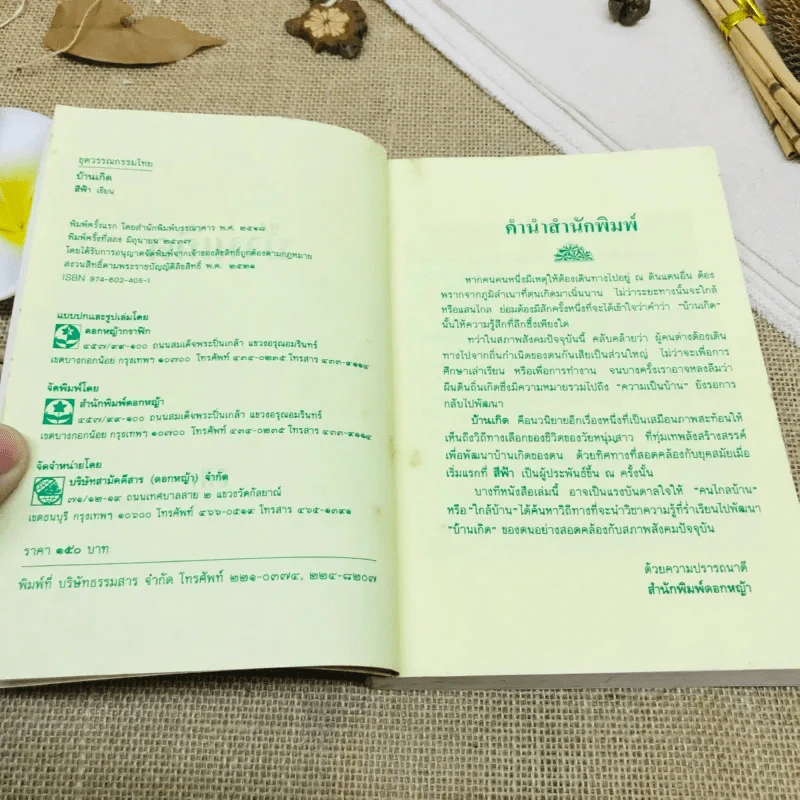 ชุดวรรณกรรมไทย
บ้านเกิด
สีฟ้า เขียน
พิมพ์ครั้งแรก โดยสำนักพิมพ์บรรณาคาร พ.ศ. ๒๕๑๘
พิมพ์ครั้งที่สอง มิถุนายน ๒๕๓๗
โดยได้รับการอนุญาตจัดพิมพ์จากเจ้าของลิขสิทธิ์ถูกต้องตามกฎหมาย
สงวนสิทธิ์ตามพระราชบัญญัติลิขสิทธิ์ พ.ศ. ๒๕๒๑
ISBN 974-602-405-1
แบบปกและรูปเล่มโดย
ดอกหญ้ากราฟิก
๔๕๗/๙๙-๑๐๐ ถนนสมเด็จพระปิ่นเกล้า แขวงอรุณอมรินทร์
เขตบางกอกน้อย กรุงเทพฯ ๑๐๗๐๐ โทรศัพท์ ๔๓๔-๐๒๓๕ โทรสาร ๔๓๓-๙๑๑๔
จัดพิมพ์โดย
สำนักพิมพ์ดอกหญ้า
๔๕๗/๙๙-๑๐๐ ถนนสมเด็จพระปิ่นเกล้า แขวงอรุณอมรินทร์
เขตบางกอกน้อย กรุงเทพฯ ๑๐๗๐๐ โทรศัพท์ ๔๓๔-๐๒๓๕ โทรสาร ๔๓๓-๙๑๑๔
จัดจำหน่ายโดย
บริษัทสามัคคีสาร (ดอกหญ้า) จำกัด
๗๑/๑๒-๑๙ ถนนเทศบาลสาย ๒ แขวงวัดกัลยาณ์
เขตธนบุรี กรุงเทพฯ ๑๐๖๐๐ โทรศัพท์ ๔๖๖-๐๕๑๙ โทรสาร ๔๖๕-๑๓๙๑
ราคา ๑๕๐ บาท
พิมพ์ที่ บริษัทธรรมสาร จำกัด โทรศัพท์ ๒๒๑-๐๓๗๔, ๒๒๔-๘๒๐๗
คำนำสำนักพิมพ์
หากคนคนหนึ่งมีเหตุให้ต้องเดินทางไปอยู่ ณ ดินแดนอื่น ต้อง
พรากจากภูมิลำเนาที่ตนเกิดมาเนิ่นนาน ไม่ว่าระยะทางนั้นจะใกล้
หรือแสนไกล ย่อมต้องมีสักครั้งหนึ่งที่จะได้เข้าใจว่าคำว่า "บ้านเกิด"
นั้นให้ความรู้สึกที่ลึกซึ้งเพียงใด
ทว่าในสภาพสังคมปัจจุบันนี้ คลับคล้ายว่า ผู้คนต่างต้องเดิน
ทางไปจากถิ่นกำเนิดของตนกันเสียเป็นส่วนใหญ่ ไม่ว่าจะเพื่อการ
ศึกษาเล่าเรียน หรือเพื่อการทำงาน จนบางครั้งเราอาจหลงลืมว่า
ผืนดินถิ่นเกิดซึ่งมีความหมายรวมไปถึง "ความเป็นบ้าน" ยังรอการ
กลับไปพัฒนา
บ้านเกิด คือนวนิยายอีกเรื่องหนึ่งที่เป็นเสมือนภาพสะท้อนให้
เห็นถึงวิถีทางเลือกของชีวิตของวัยหนุ่มสาว ที่ทุ่มเทพลังสร้างสรรค์
เพื่อพัฒนาบ้านเกิดของตน ด้วยทิศทางที่สอดคล้องกับยุคสมัยเมื่อ
เริ่มแรกที่ สีฟ้า เป็นผู้ประพันธ์ขึ้น ณ ครั้งนั้น
บางทีหนังสือเล่มนี้ อาจเป็นแรงบันดาลใจให้ "คนไกลบ้าน"
หรือ "ใกล้บ้าน" ได้ค้นหาวิถีทางที่จะนำวิชาความรู้ที่ร่ำเรียนไปพัฒนา
"บ้านเกิด" ของตนอย่างสอดคล้องกับสภาพสังคมปัจจุบัน
ด้วยความปรารถนาดี
สำนักพิมพ์ดอกหญ้า